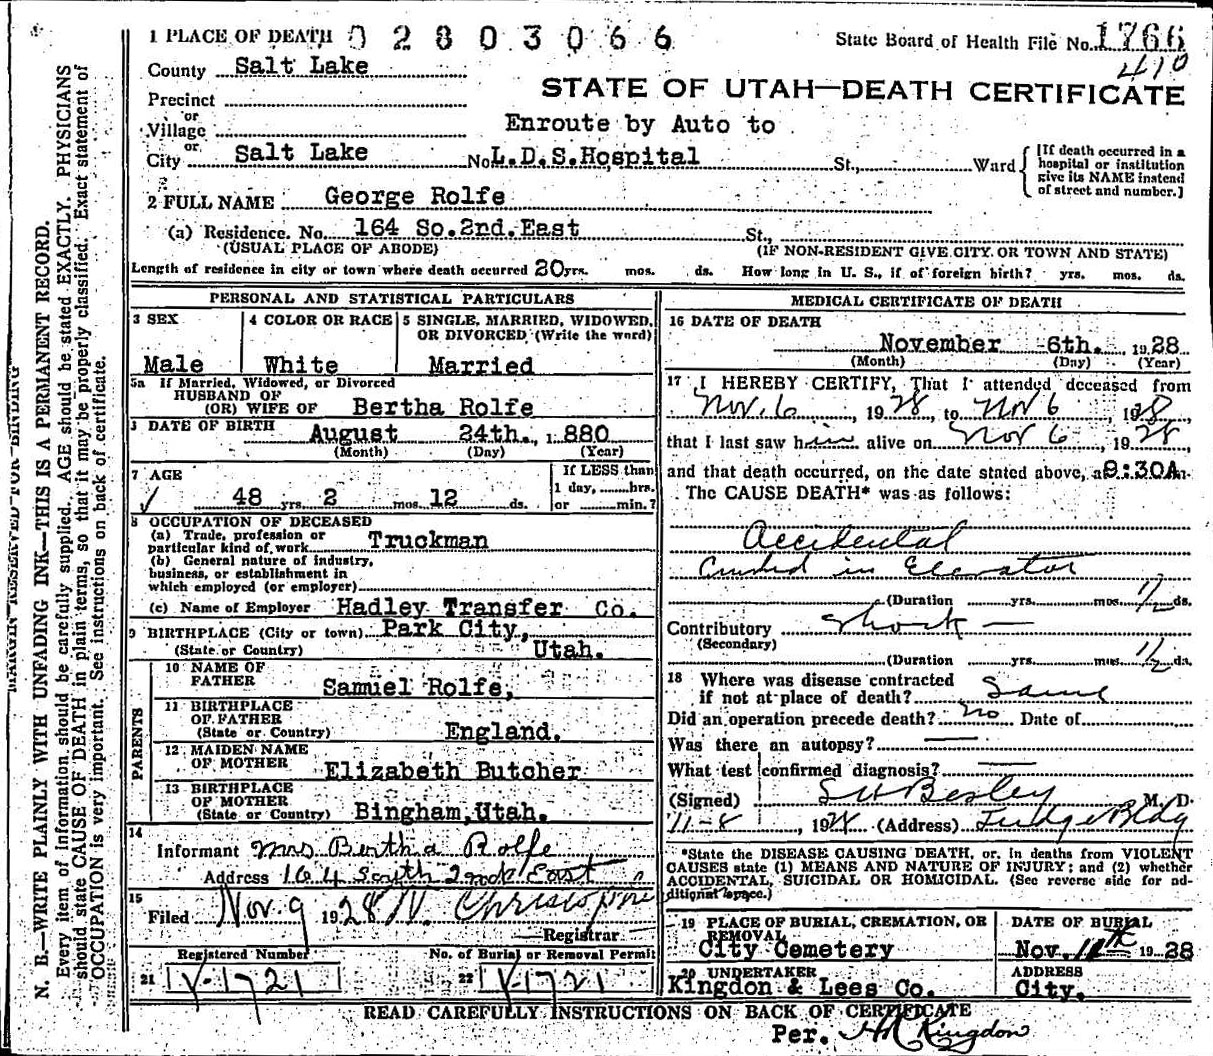 1 PLACE OF DEATH 02803066
State Board of Health File No. 1766
410
County Salt Lake
STATE OF UTAH—DEATH CERTIFICATE
Precinct
or
Village
Enroute by Auto to
or
City Salt Lake No. L.D.S.Hospital St., Ward
[If death occurred in a hospital or institution give its NAME instead of street and number.]
2 FULL NAME George Rolfe
(a) Residence. No. 164 So.2nd.East St.,
(USUAL PLACE OF ABODE) (IF NON-RESIDENT GIVE CITY OR TOWN AND STATE)
Length of residence in city or town where death occurred 20 yrs. mos. ds. How long in U. S., if of foreign birth? yrs. mos. ds.
PERSONAL AND STATISTICAL PARTICULARS
3 SEX
Male
4 COLOR OR RACE
White
5 SINGLE, MARRIED, WIDOWED,
OR DIVORCED (Write the word)
Married
5a If Married, Widowed, or Divorced
HUSBAND OF
(OR) WIFE OF Bertha Rolfe
DATE OF BIRTH August 24th., 1880
(Month) (Day) (Year)
7 AGE
48 yrs. 2 mos. 12 ds.
If LESS than
1 day, hrs.
or min.?
8 OCCUPATION OF DECEASED
(a) Trade, profession or
particular kind of work Truckman
(b) General nature of industry,
business, or establishment in
which employed (or employer)
(c) Name of Employer Hadley Transfer Co.
9 BIRTHPLACE (City or town) Park City,
(State or Country) Utah.
PARENTS
10 NAME OF
FATHER Samuel Rolfe,
11 BIRTHPLACE
OF FATHER
(State or Country) England.
12 MAIDEN NAME
OF MOTHER Elizabeth Butcher
13 BIRTHPLACE
OF MOTHER
(State or Country) Bingham,Utah.
14
Informant Mrs Bertha Rolfe
Address 164 South 2nd East
15
Filed Nov. 9 1928
Registrar
Registered Number No. of Burial or Removal Permit
21 Y-1721 22 Y-1721
MEDICAL CERTIFICATE OF DEATH
16 DATE OF DEATH
November 6th., 1928
(Month) (Day) (Year)
17 I HEREBY CERTIFY, That I attended deceased from
Nov. 6, 1928, to Nov 6, 1928
that I last saw him alive on Nov 6, 1928
and that death occurred, on the date stated above, at 9:30A m.
The CAUSE DEATH* was as follows:
Accidental
Crushed in Elevator
(Duration yrs. mos. 1/2 ds.
Contributory Shock —
(Secondary)
(Duration yrs. mos. 1/2 ds.
18 Where was disease contracted
if not at place of death? Same
Did an operation precede death? no Date of
Was there an autopsy? —
What test confirmed diagnosis? —
(Signed) Besley M. D.
11-8, 1928 (Address) Judge Bldg
*State the DISEASE CAUSING DEATH, or, in deaths from VIOLENT
CAUSES state (1) MEANS AND NATURE OF INJURY; and (2) whether
ACCIDENTAL, SUICIDAL OR HOMICIDAL. (See reverse side for ad-
ditional space.)
19 PLACE OF BURIAL, CREMATION, OR
REMOVAL
City Cemetery
DATE OF BURIAL
Nov. 1928
20 UNDERTAKER
Kingdon & Lees Co.
ADDRESS
City.
READ CAREFULLY INSTRUCTIONS ON BACK OF CERTIFICATE
Per. Kingdon
MARGIN RESERVED FOR BINDING
N. B.—WRITE PLAINLY WITH UNFADING INK—THIS IS A PERMANENT RECORD.
Every item of information should be carefully supplied. AGE should be stated EXACTLY. PHYSICIANS
should state CAUSE OF DEATH in plain terms, so that it may be properly classified. Exact statement of
OCCUPATION is very important. See instructions on back of certificate.